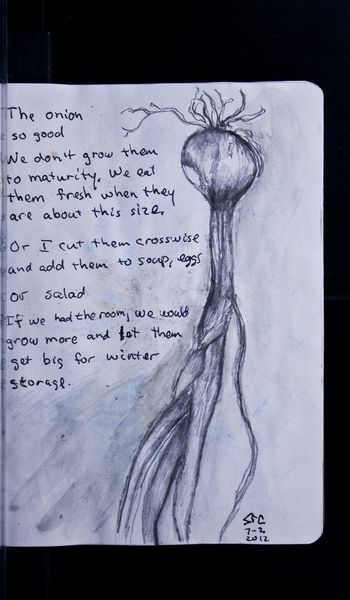 The onion
so good
We don't grow them
to maturity. We eat
them fresh when they
are about this size.
Or I cut them crosswise
and add them to soup, eggs
or salad
If we had the room, we would
grow more and let them
get big for winter
storage.
SFC
7-2
2012